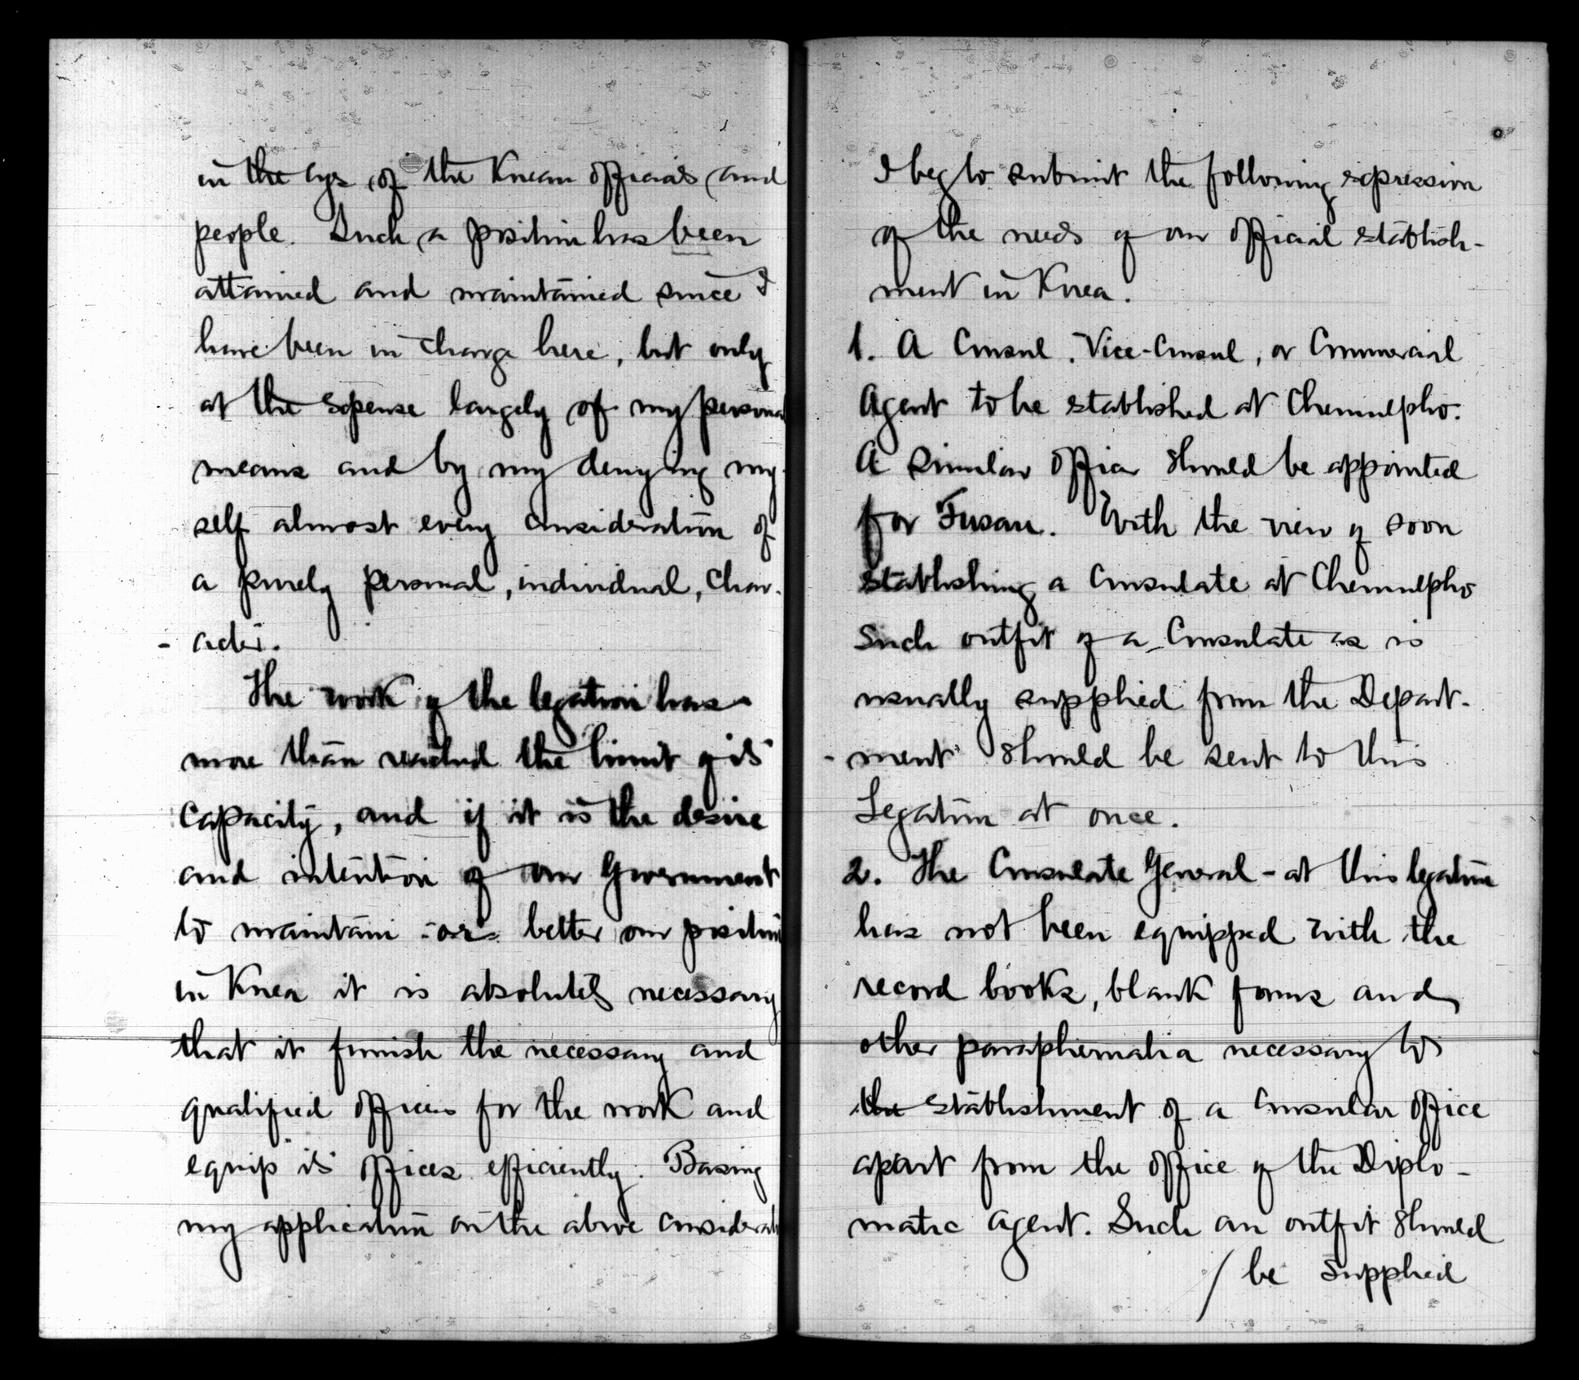 in the eyes of the Korean officials and
people. Such a position has been
attained and maintained since I
have been in charge here, but only
at the expense largely of my personal
means and by my denying my-
self almost every consideration of
a purely personal, individual, char-
- acter.
The work of the legation has
more than reached the limit of its
capacity, and if it is the desire
and intention of our Government
to maintain - or - better our position
in Korea it is absolutely necessary
that it furnish the necessary and
qualified officers for the work and
equip its offices efficiently. Basing
my application on the above considerations
I beg to submit the following expression
of the needs of our official establish-
ment in Korea.
1. A Consul, Vice-Consul, or Commercial
Agent to be established at Chemulpho.
A similar officer should be appointed
for Fusan. With the view of soon
establishing a Consulate at Chemulpho
such outfit of a Consulate as is
usually supplied from the Depart-
- ment should be sent to this
Legation at once.
2. The Consulate General - at this legation
has not been equipped with the
record books, blank forms and
other paraphernalia necessary to
the establishment of a consular office
apart from the office of the Diplo-
matic agent. Such an outfit should
/ be supplied